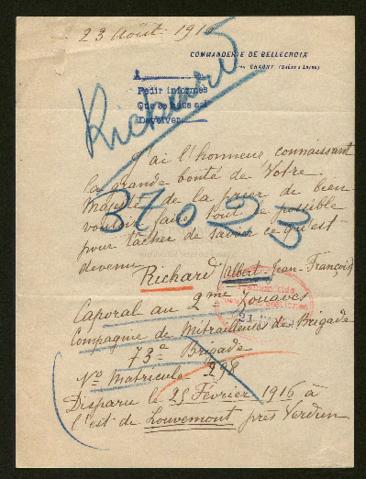 23 Août 1916
COMMANDERIE DE BELLECROIX
CHAGNY (SAÔNE & LOIRE)
Pedir informes
Que se hace
Devolver
Richard
J'ai l'honneur connaissant
la grande bonté de Votre
Majesté de la prier de bien
vouloir faire tout le possible
pour tâcher de savoir ce qu'est
37023
devenu
Richard (Albert-Jean-François)
Caporal au 9me Zouaves
Compagnie de Mitrailleuses de Brigade
73e Brigade
No Matricule 298
Disparu le 25 Février 1916 à
l'est de Louvemont près Verdun